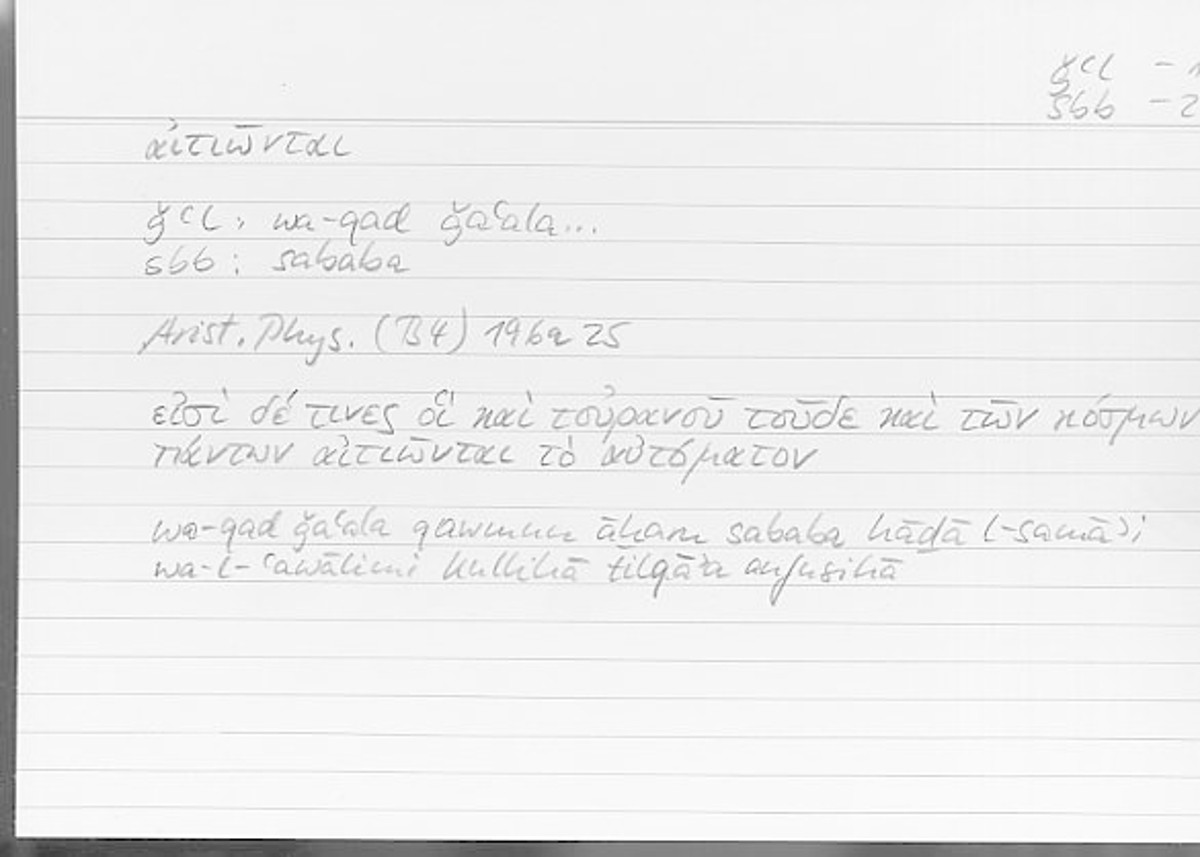 ǧʿl - 1
sbb - 2
αἰτιῶνται
ǧʿl: wa-qad ǧaʿala...
sbb: sababa
Arist. Phys. (B4) 196a25
εἰσὶ δέ τινες οἳ καὶ τοὐρανοῦ τοῦδε καὶ τῶν κόσμων
πάντων αἰτιῶνται τὸ αὐτόματον
wa-qad ǧaʿala qawmun āḫaru sababa hāḏā l-samāʾi
wa-l-ʿawālimi kullihā tilqāʾa anfusihā